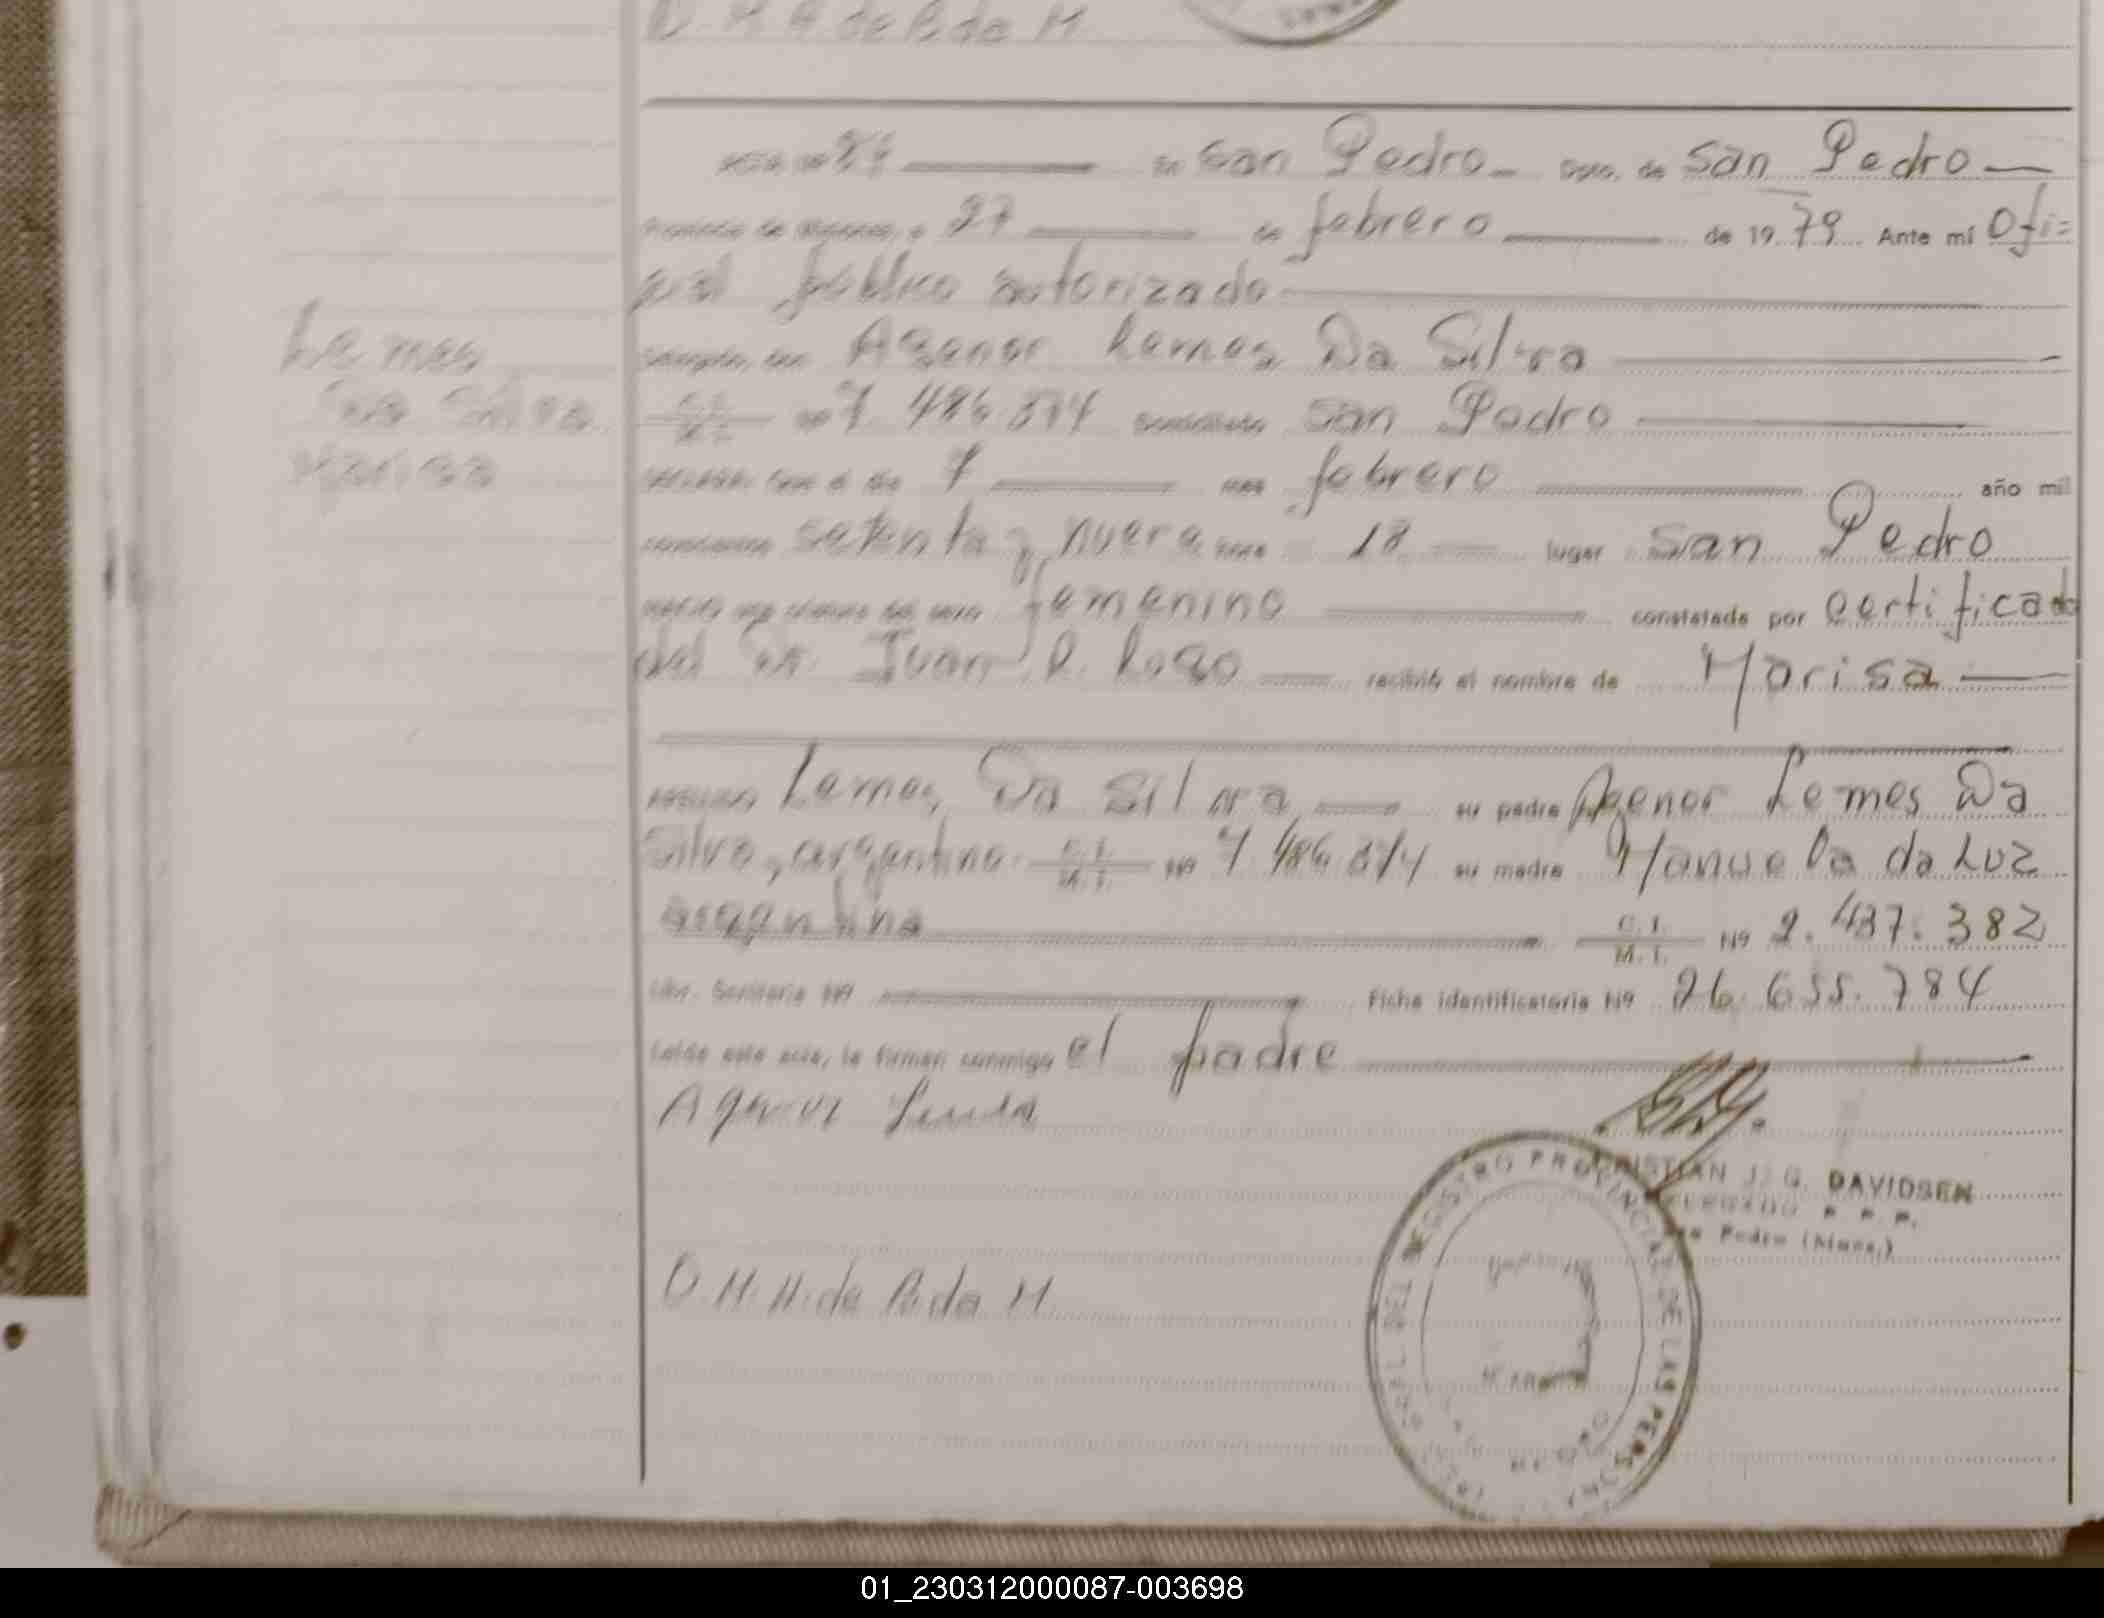 D. M. H de Peda M
Acta Nº 84 En San Pedro Dpto. de San Pedro
Provincia de Misiones, a 27 de febrero de 1979 Ante mí Ofi=
cial público autorizado
comparece don Agenor Lemes Da Silva
Lemes
C. I.
M. I. Nº 7.486.874 domiciliado San Pedro
Da Silva
Marisa
declaró que el día 7 mes febrero año mil
novecientos setenta y nueve hora 18 lugar San Pedro
nació una criatura del sexo femenino constatada por certificado
del Dr. Juan R. Lago recibió el nombre de Marisa
Apellido Lemes Da Silva su padre Agenor Lemes Da
Silva, argentino C. I. M. I. Nº 7.486.874 su madre Manuela da Luz
argentina C. I. M. I. Nº 2.437.382
Libr. Sanitaria Nº Ficha identificatoria Nº 26.655.784
Leída este acta, la firman conmigo el padre
Agenor
CRISTIAN J. G. DAVIDSEN
DELEGADO R. P. P.
San Pedro (Mnes.)
DEL REGISTRO PROVINCIAL DE LAS PERSONAS
D. M. H. de Peda M
01_230312000087-003698